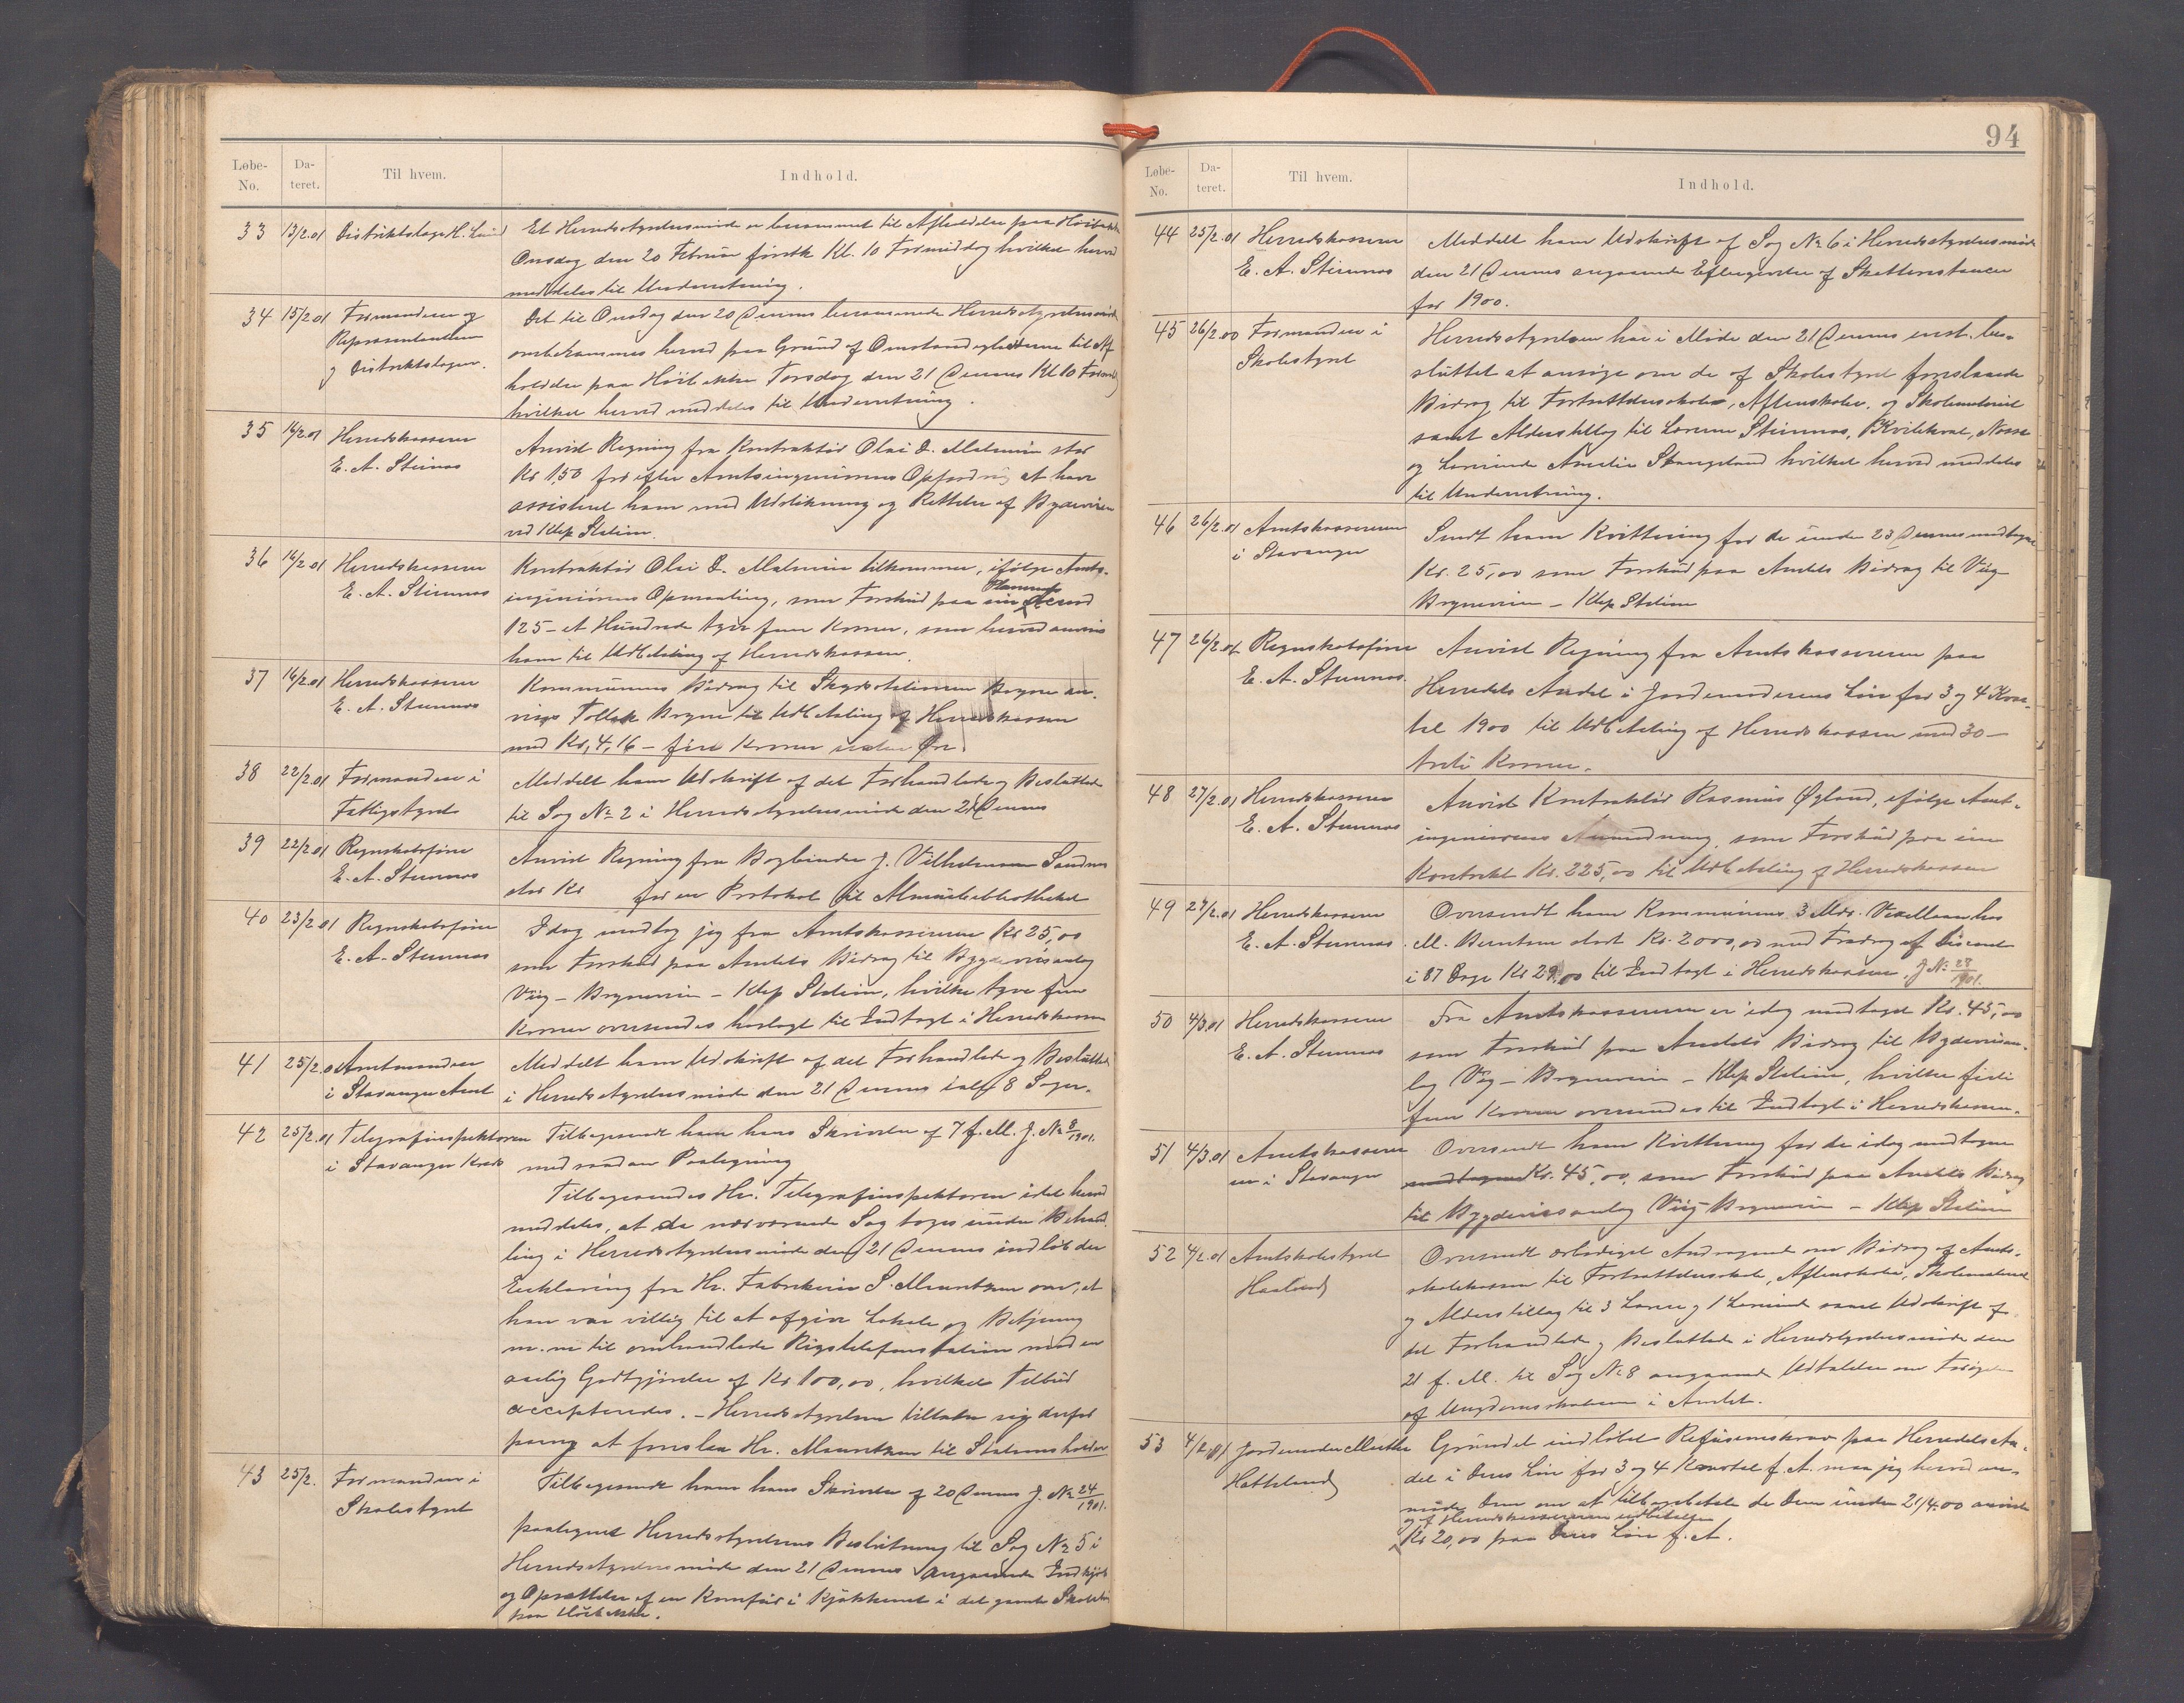 Løbe-No. Dateret. Til hvem. Indhold.
33 13/2.01 Distriktslæge H. Lund Et Herredsstyrelsesmøde er berammet til Afholdelse paa Høibakke
Onsdag den 20 Februar førstk Kl. 10 Formiddag hvilket herved
meddeles til Underretning.
34 15/2.01 Formanden og Repræsentanterne og Distriktslægen. Det til Onsdag den 20 Dennes berammede Herredsstyrelsesmøde
ombekrammes herved paa Grund af Omstændighederne til Af
holdelse paa Høibakke Torsdag den 21 Dennes Kl 10 Formd
hvilket herved meddeles til Underretning.
35 16/2.01 Herredskasserer E. A. Steinnes Anvist Regning fra Kontraktør Olai O. Malmin stor
Kr 1,50 for efter Amtsingeniørens Opfordring at have
assisteret ham med Udstikning og Rettelse af Bygdeveien
ved Klep Station.
36 16/2.01 Herredskasserer E. A. Steinnes Kontraktør Olai O. Malmin tilkommer, ifølge Amts-
ingeniørens Opmaaling, som Forskud paa sin Akkord
125 - et Hundrede tyve fem Kroner, som herved anvises
ham til Udbetaling af Herredskassen.
37 16/2.01 Herredskasserer E. A. Steinnes Kommunens Bidrag til Skydsstationen Bryne an-
vises Tollak Bryne til Udbetaling af Herredskassen
med Kr, 4,16 - fire Kroner sexten Øre.
38 22/2.01 Formanden i Fattigstyret Meddelt ham Udskrift af det Forhandlede og Besluttede
til Sag No 2 i Herredsstyrelsesmøde den 21 Dennes
39 22/2.01 Regnskabsfører E. A. Steinnes Anvist Regning fra Bogbinder J. Vilhelmsen Sandnes
stor Kr for en Protokol til Almuebibliotheket
40 23/2.01 Regnskabsfører E. A. Steinnes Idag modtog jeg fra Amtskassereren Kr 25,00
som Forskud paa Amtets Bidrag til Bygdeveisanlæg
Vig - Bryneveien - Klep Station, hvilke tyve fem
Kroner oversendes hoslagt til Indtægt i Herredskassen
41 25/2.01 Amtmanden i Stavanger Amt Meddelt ham Udskrift af det Forhandlede og Besluttede
i Herredsstyrelsesmøde den 21 Dennes ialt 8 Sager.
42 25/2.01 Telegrafinspektøren i Stavanger Kreds Tilbagesendt ham hans Skrivelse af 7 f. M. J. No 8/1901.
med saadan Paategning
Tilbagesendes Hr. Telegrafinspektøren idet herved
meddeles, at da nærværende Sag toges under Behand
ling i Herredsstyrelsesmøde den 21 Dennes indløb der
Erklæring fra Hr. Fabrikeier S. Mauritzen om, at
han var villig til at afgive Lokale og Betjening
m. m til omhandlede Rigstelefonstation mod en
aarlig Godtgjørelse af Kr 100,00, hvilket Tilbud
accepteredes. - Herredsstyrelsen tillader sig derfor
paany at foreslaa Hr. Mauritzen til Stationsholder
43 25/2. Formanden i Skolestyret Tilbagesendt ham hans Skrivelse af 20 Dennes J. No 24/1901.
paategnet Herredsstyrelsens Beslutning til Sag No 5 i
Herredsstyrelsesmøde den 21 Dennes angaaende Indkjøb
og Opsættelse af en Komfur i Kjøkkenet i det gamle Skolehus
paa Høibakke.
94
Løbe-No. Dateret. Til hvem. Indhold.
44 25/2.01 Herredskasserer E. A. Steinnes Meddelt ham Udskrift af Sag No 6 i Herredsstyrelsesmøde
den 21 Dennes angaaende Eftergivelse af Skatterestancer
for 1900.
45 26/2.00 Formanden i Skolestyret Herredsstyrelsen har i Møde den 21 Dennes enst. be-
sluttet at ansøge om de af Skolestyret foreslaaede
Bidrag til Fortsættelsesskole, Aftenskole, og Skolemateriel
samt Alderstillæg til Lærerne Steinnes, Kvilekval, Nosse
og Lærerinde Amalie Stangeland hvilket herved meddeles
til Underretning.
46 26/2.01 Amtskassereren i Stavanger Sendt ham Kvittering for de under 23 Dennes modtagne
Kr. 25,00 som Forskud paa Amtets Bidrag til Vig
Bryneveien - Klep Station
47 26/2.01 Regnskabsfører E. A. Steinnes. Anvist Regning fra Amtskassereren paa
Herredets Andel i Jordemoderens Løn for 3 og 4 Kvar-
tal 1900 til Udbetaling af Herredskassen med 30 -
tredi Kroner.
48 27/2.01 Herredskasserer E. A. Steinnes Anvist Kontraktør Rasmus Øgland, ifølge Amts-
ingeniørens Anmodning, som Forskud paa sin
Kontrakt Kr. 225,00 til Udbetaling af Herredskassen
49 27/2.01 Herredskasserer E. A. Steinnes Oversendt ham Kommunens 3 Mdr. Vexellaan hos
M. Berntsen stort Kr. 2000,00 med Fradrag af Discont
i 87 Dage Kr 29,00 til Indtægt i Herredskassen. J No 28/1901.
50 4/3.01 Herredskasserer E. A. Steinnes Fra Amtskassereren er idag modtaget Kr. 45,00
som Forskud paa Amtets Bidrag til Bygdeveisan-
læg Vig - Bryneveien - Klep Station, hvilke firti
fem Kroner oversendes til Indtægt i Herredskassen.
51 4/3.01 Amtskasserer en i Stavanger Oversendt ham Kvittering for de idag modtagne
modtagne Kr. 45,00, som Forskud paa Amtets Bidrag
til Bygdeveisanlæg Vig - Bryneveien - Klep Station
52 4/2.01 Amtsskolestyret Haaland Oversendt ærbødigst Andragende om Bidrag af Amts-
skolekassen til Fortsættelsesskole, Aftenskole, Skolemateriel
og Alderstillæg til 3 Lærere og 1 Lærerinde samt Udskrift af
det Forhandlede og Besluttede i Herredsstyrelsesmøde den
21 f. M. til Sag No 8 angaaende Udtalelse om Forøgelse
af Ungdomsskolerne i Amtet.
53 Jordemoder Marthe Hatteland Grundet indløbet Refusionskrav paa Herredets An-
del i Deres Løn for 3 og 4 Kvartal f. A. maa jeg herved an-
mode Dem om at tilbagebetale de Dem under 21/4.00 anviste
og af Herredskassereren udbetalte
Kr 20,00 paa Deres Løn f. A.